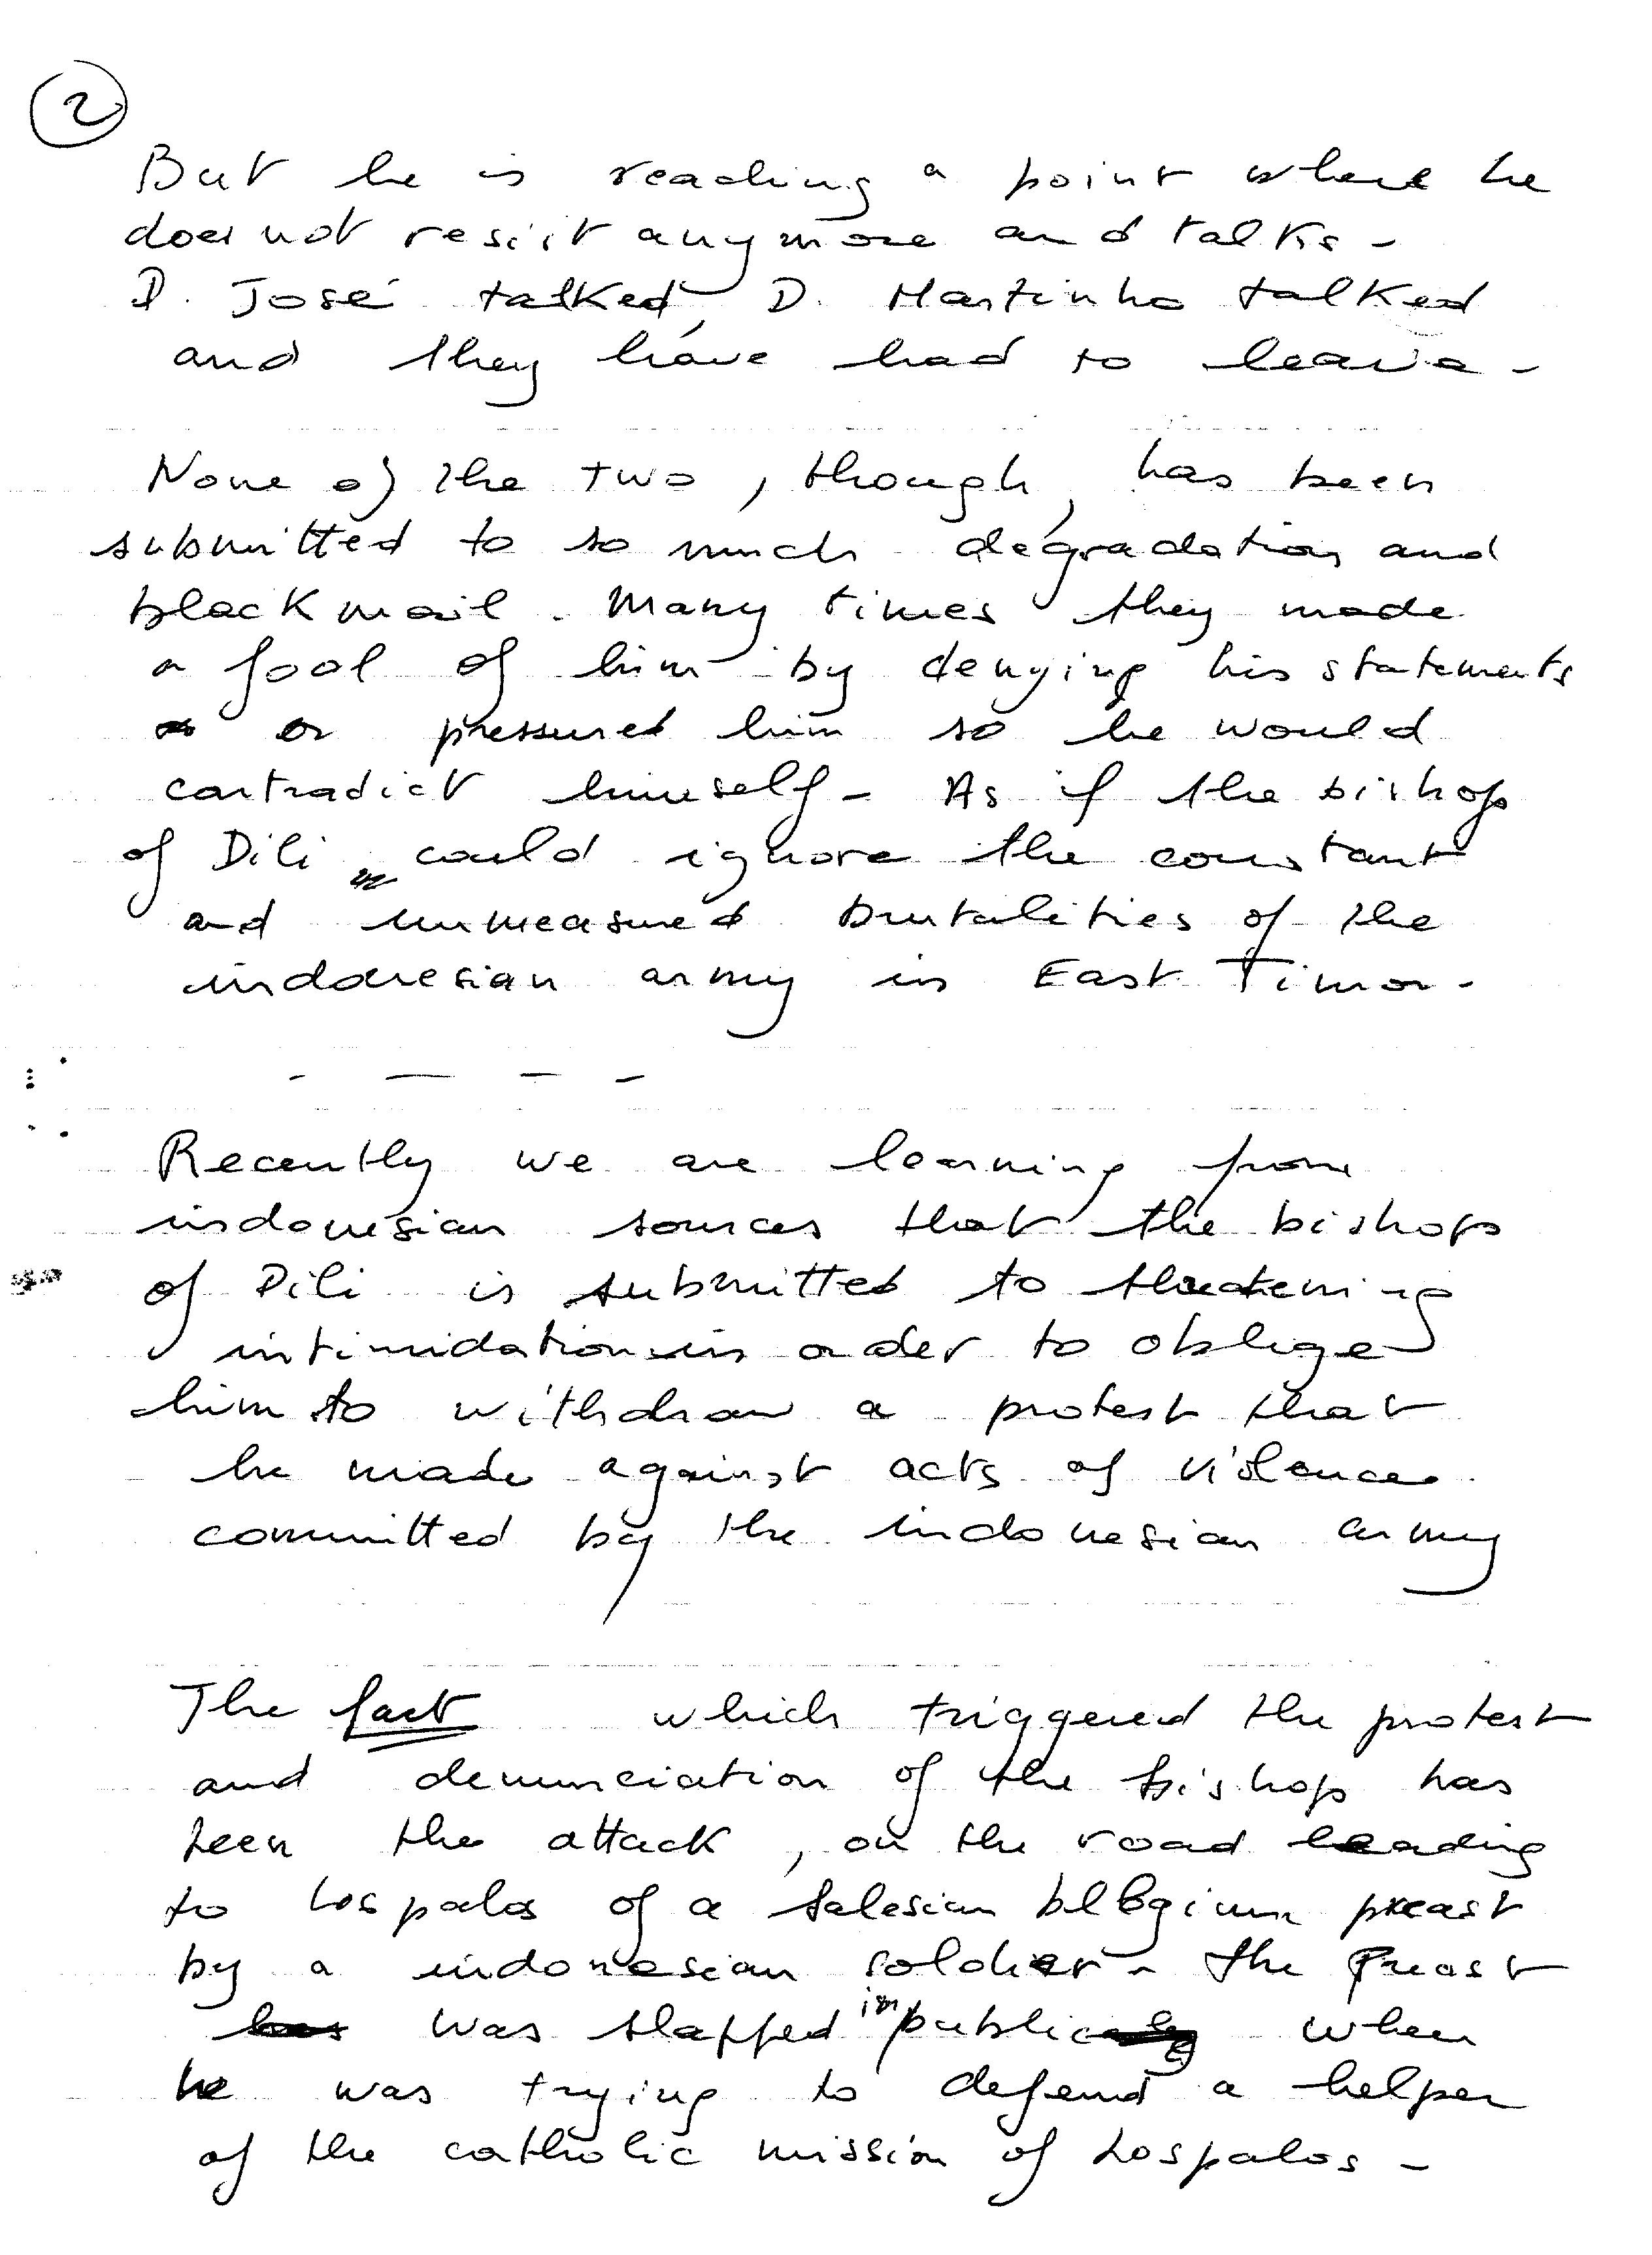 2
But he is reaching a point where he
does not resist anymore and talks -
D. José talked, D. Martinho talked
and they have had to leave -
None of the two, though, has been
submitted to so much degradation and
blackmail. Many times they made
a fool of him by denying his statements
or pressured him so he would
contradict himself - As if the bishop
of Dili could ignore the constant
and unmeasured brutalities of the
indonesian army in East Timor -
- — - -
Recently we are learning from
indonesian sources that the bishop
of Dili is submitted to threatening
intimidations in order to oblige
him to withdraw a protest that
he made against acts of violence
committed by the indonesian army
The fact which triggered the protest
and denunciation of the bishop has
been the attack, on the road leading
to Lospalos of a salesian belgium preast
by a indonesian soldier - the preast
was slapped in public when
he was trying to defend a helper
of the catholic mission of Lospalos -